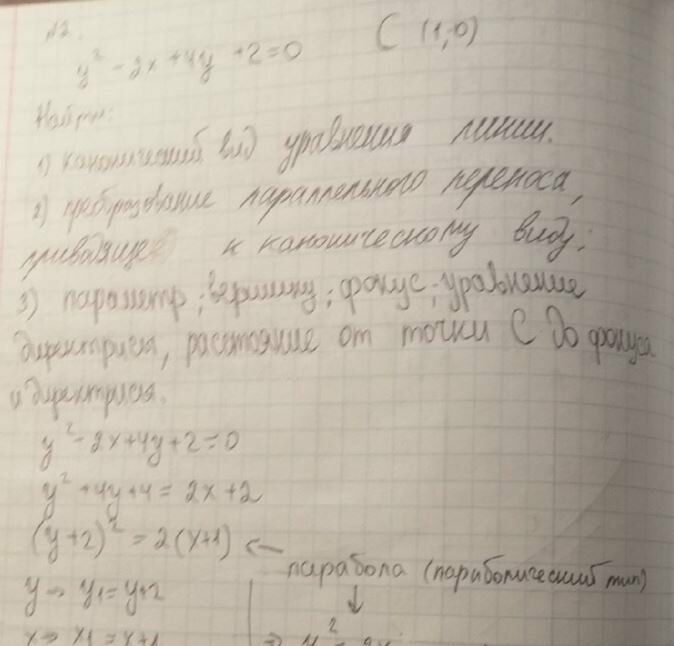 №2.
y² - 2x + 4y + 2 = 0 C (1;0)
Найти:
1) канонический вид уравнения линии.
2) преобразование параллельного переноса,
приводящее к каноническому виду;
3) параметр; вершину; фокус; уравнение
директрисы, расстояние от точки C до фокуса
и директрисы.
y² - 2x + 4y + 2 = 0
y² + 4y + 4 = 2x + 2
(y+2)² = 2(x+1) ←
парабола (параболический тип)
↓
y → y₁ = y+2
x → x₁ = x+1